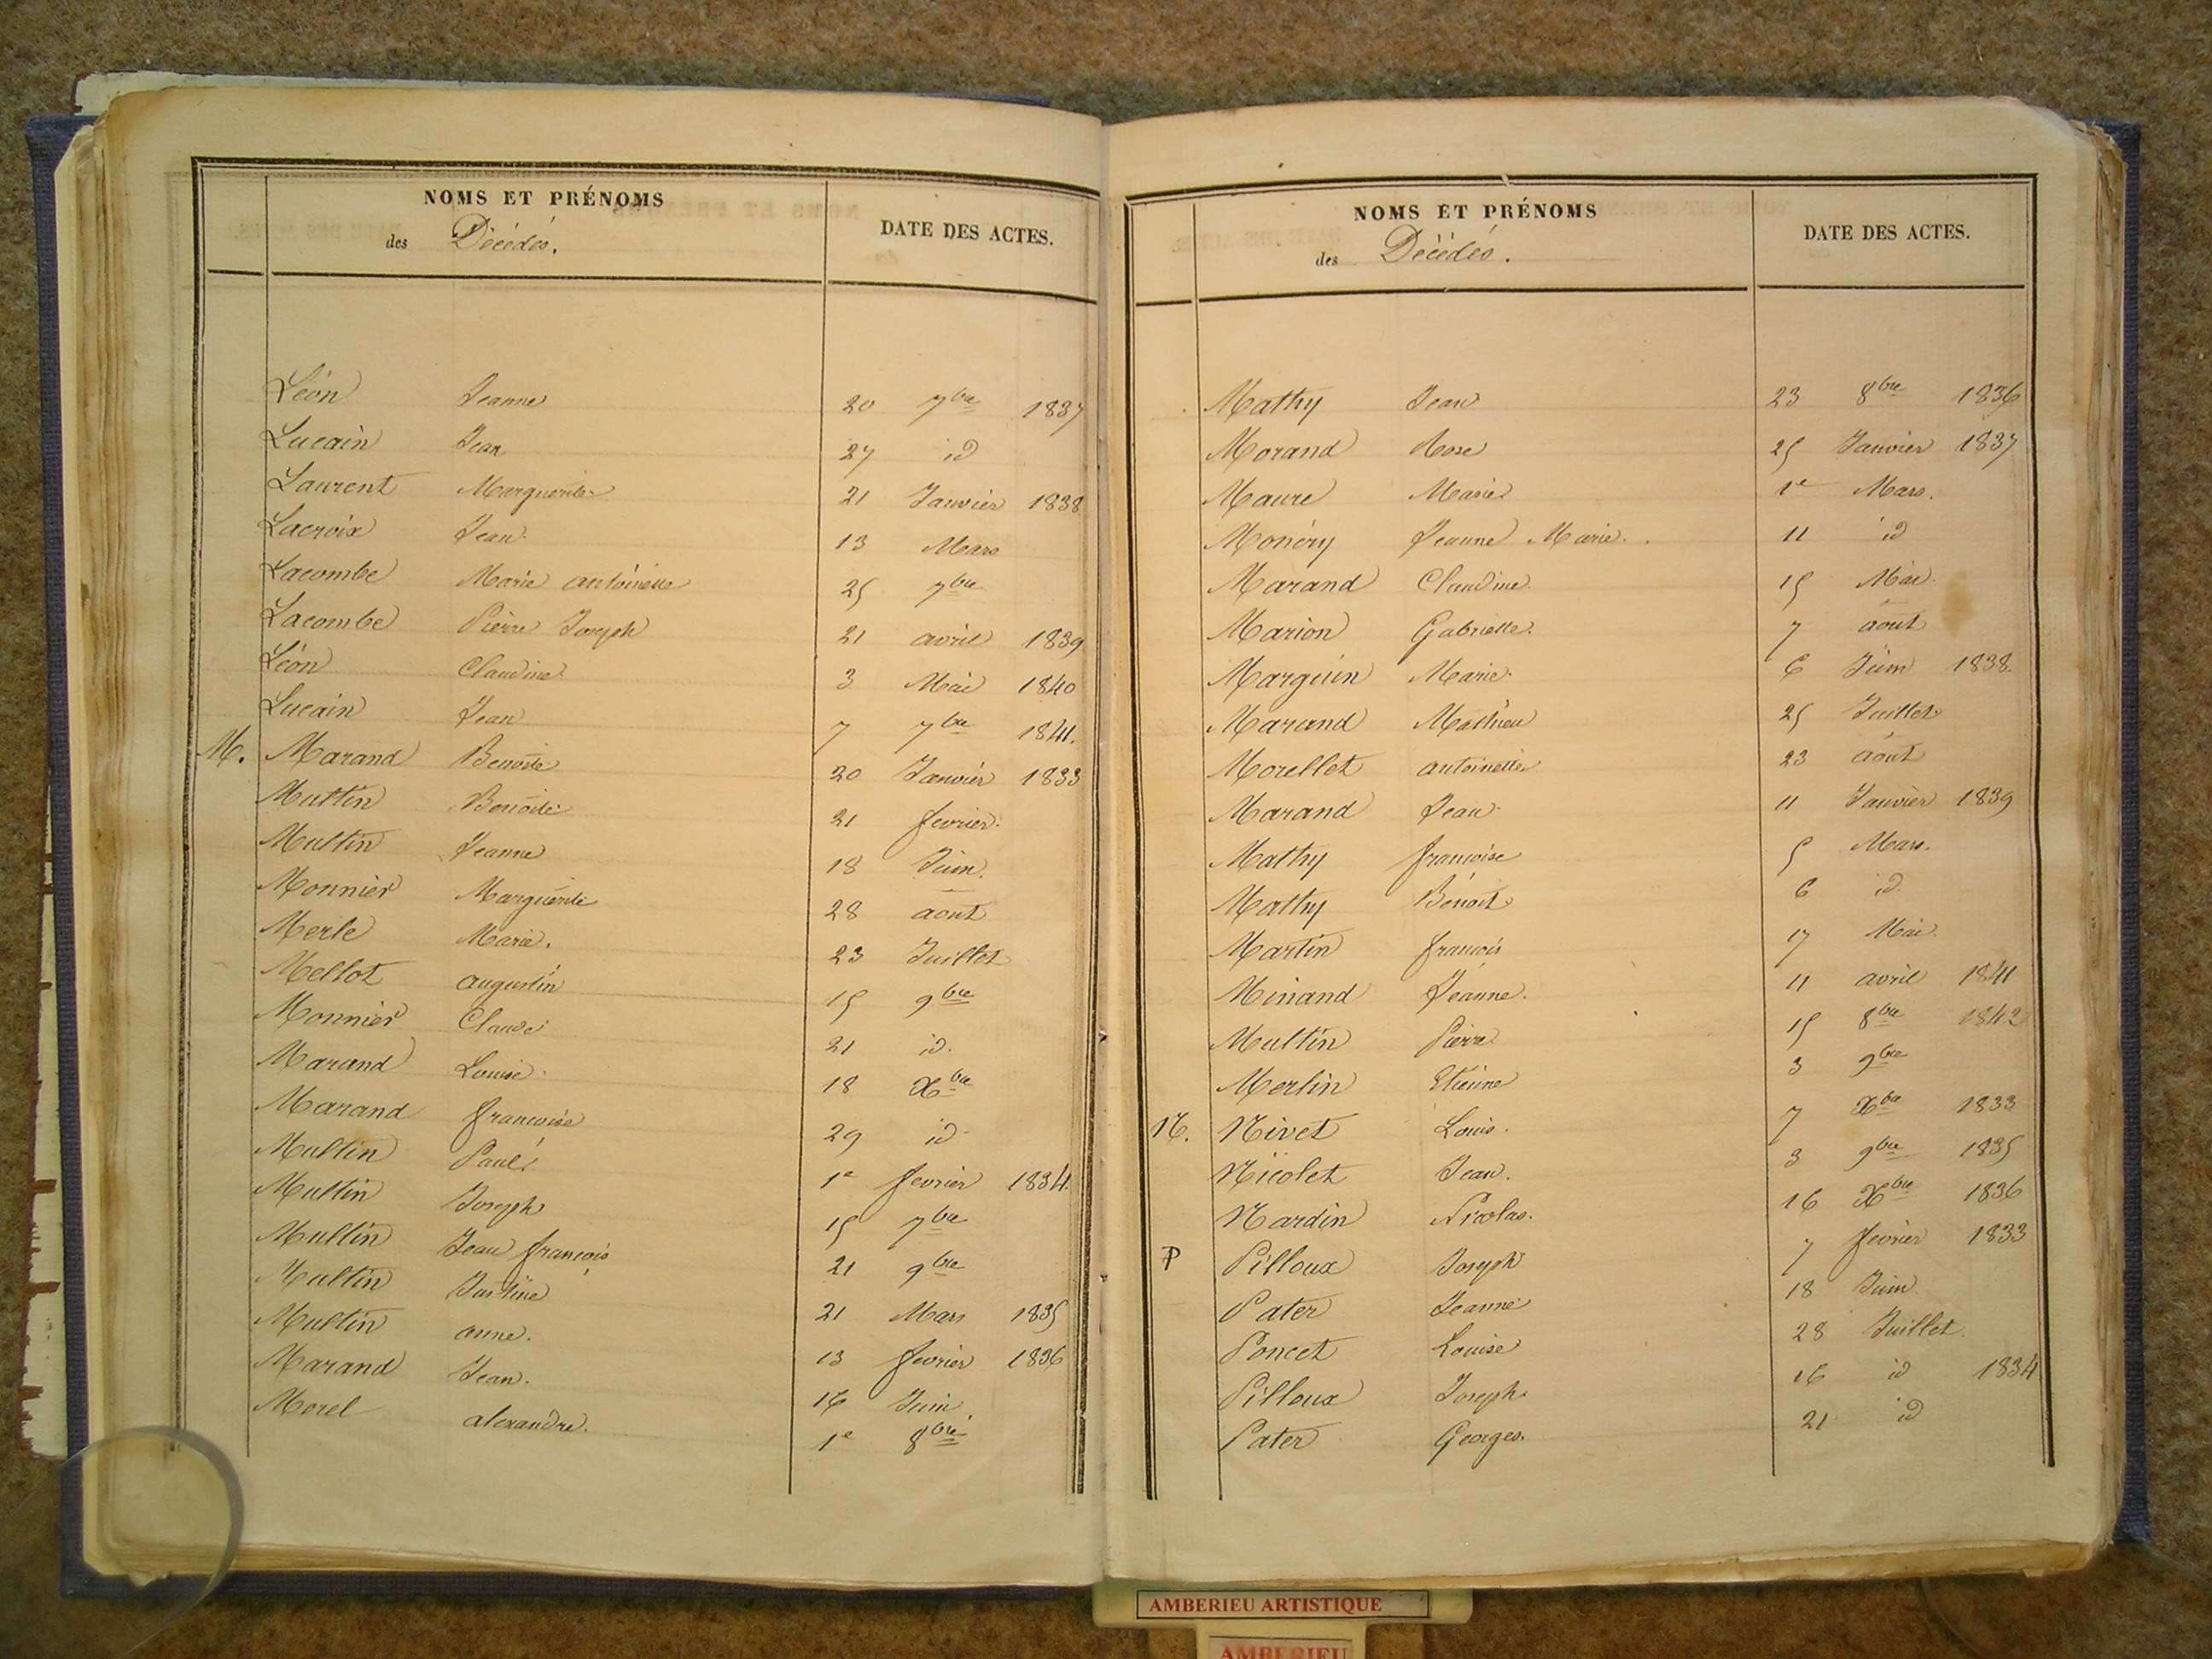 NOMS ET PRÉNOMS
des Décédés. DATE DES ACTES.
Léon Jeanne 20 7bre 1837
Lucain Jean 27 id
Laurent Marguerite 21 Janvier 1838
Lacroix Jean 13 Mars
Lacombe Marie antoinette 25 7bre
Lacombe Pierre Joseph 21 avril 1839
Léon Claudine 3 Mai 1840
Lucain Jean 7 7bre 1841.
M. Marand Benoite 20 Janvier 1833
Multin Benoite 21 fevrier.
Multin Jeanne 18 Juin.
Monnier Marguerite 28 aout
Merle Marie. 23 Juillet
Mellot augustin 15 9bre
Monnier Claude 21 id.
Marand Louise 18 Xbre
Marand francoise 29 id
Multin Paul 1e fevrier 1834.
Multin Joseph 15 7bre
Multin Jean françois 21 9bre
Multin Justine 21 Mars 1835
Multin anne. 13 fevrier 1836
Marand Jean. 16 Juin
Morel alexandre. 1e 8bre
NOMS ET PRÉNOMS
des Décédés. DATE DES ACTES.
Mathy Jean 23 8bre 1836
Morand Rose 25 Janvier 1837
Maure Marie 1e Mars.
Monéry Jeanne Marie. 11 id
Marand Claudine 15 Mai
Marion Gabrielle. 7 aout
Marguin Marie. 6 Juin 1838.
Marand Mathieu 25 Juillet
Morellet antoinette 23 août
Marand Jean 11 Janvier 1839
Mathy françoise 5 Mars.
Mathy Benoit 6 id.
Martin francois 17 Mai
Minand Jeanne. 11 avril 1841
Multin Pierre 15 8bre 1842
Merlin Etienne 3 9bre
N. Nivet Louis. 7 Xbre 1833
Nicolet Jean. 3 9bre 1835
Nardin Nicolas. 16 Xbre 1836
P Pilloux Joseph 7 fevrier 1833
Pater Jeanne 18 Juin
Poncet Louise 28 Juillet
Pilloux Joseph 16 id 1834
Pater Georges. 21 id
AMBERIEU ARTISTIQUE
AMBERIEU